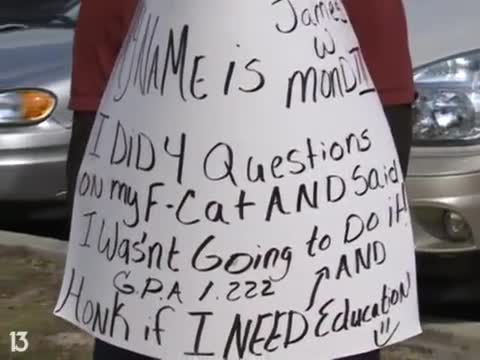 James
W
MY NAME is MonD III
I DiD 4 Questions
ON my F-Cat AND Said
I Wasn't Going to Do it!
G.P.A 1.222 AND
HONK if I NEED Education
13